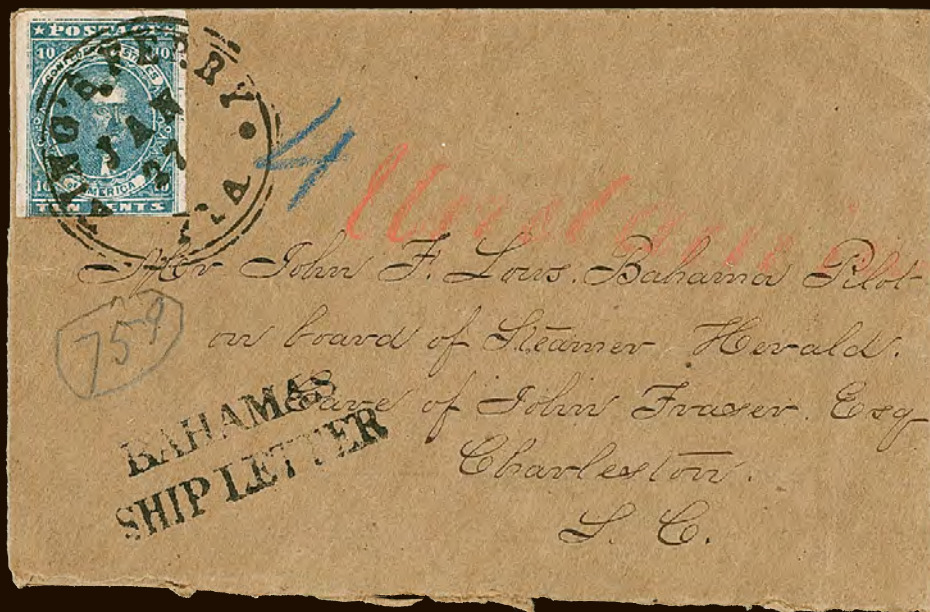 ★ POSTAGE
10 CONFEDERATE STATES 10
OF AMERICA
TEN CENTS
KING'S FERRY
JAN
27
FLA
4
759
Mr John F. Lows. Bahama Pilot
on board of Steamer Herald.
Care of John Fraser. Esq
Charleston.
S. C.
BAHAMAS
SHIP LETTER